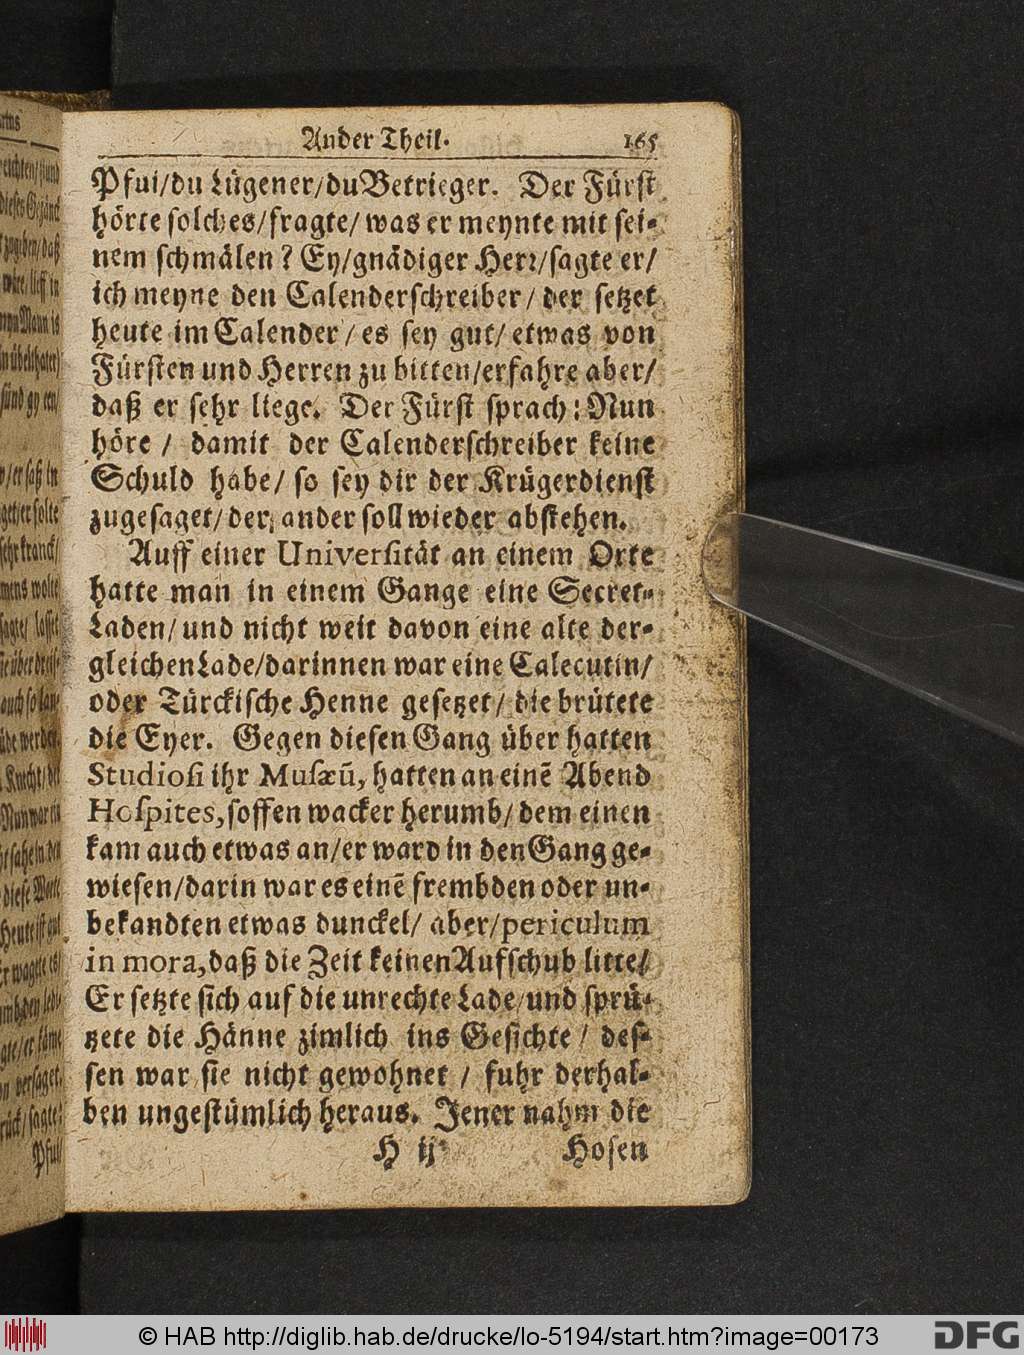 Ander Theil. 165
Pfui/du Lügener/du Betrieger. Der Fürst
hörte solches/fragte/was er meynte mit sei-
nem schmälen? Ey/gnädiger Herr/sagte er/
ich meyne den Calenderschreiber/der setzet
heute im Calender/es sey gut/etwas von
Fürsten und Herren zu bitten/erfahre aber/
daß er sehr liege. Der Fürst sprach: Nun
höre/ damit der Calenderschreiber keine
Schuld habe/so sey dir der Krügerdienst
zugesaget/der ander soll wieder abstehen.
Auff einer Universität an einem Orte
hatte man in einem Gange eine Secret-
Laden/und nicht weit davon eine alte der-
gleichen Lade/darinnen war eine Calecutin/
oder Türckische Henne gesetzet/die brütete
die Eyer. Gegen diesen Gang über hatten
Studiosi ihr Musæū, hatten an einē Abend
Hospites, soffen wacker herumb/dem einen
kam auch etwas an/er ward in den Gang ge-
wiesen/darin war es einē frembden oder un-
bekandten etwas dunckel/aber/periculum
in mora, daß die Zeit keinen Aufschub litte/
Er setzte sich auf die unrechte Lade/und sprü-
tzete die Hänne zimlich ins Gesichte/ des-
sen war sie nicht gewohnet/ fuhr derhal-
ben ungestümlich heraus. Jener nahm die
H ij Hosen
© HAB http://diglib.hab.de/drucke/lo-5194/start.htm?image=00173
DFG